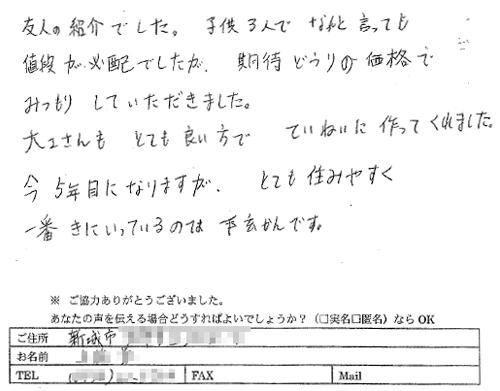 友人の紹介でした。子供3人でなんと言っても
値段が心配でしたが、期待どうりの価格で
みつもりしていただきました。
大工さんもとても良い方でていねいに作ってくれました
今5年目になりますが、とても住みやすく
一番きにいっているのは玄かんです。
※ ご協力ありがとうございました。
あなたの声を伝える場合どうすればよいでしょうか？（□実名□匿名）なら OK
ご住所 新城市
お名前
TEL FAX Mail